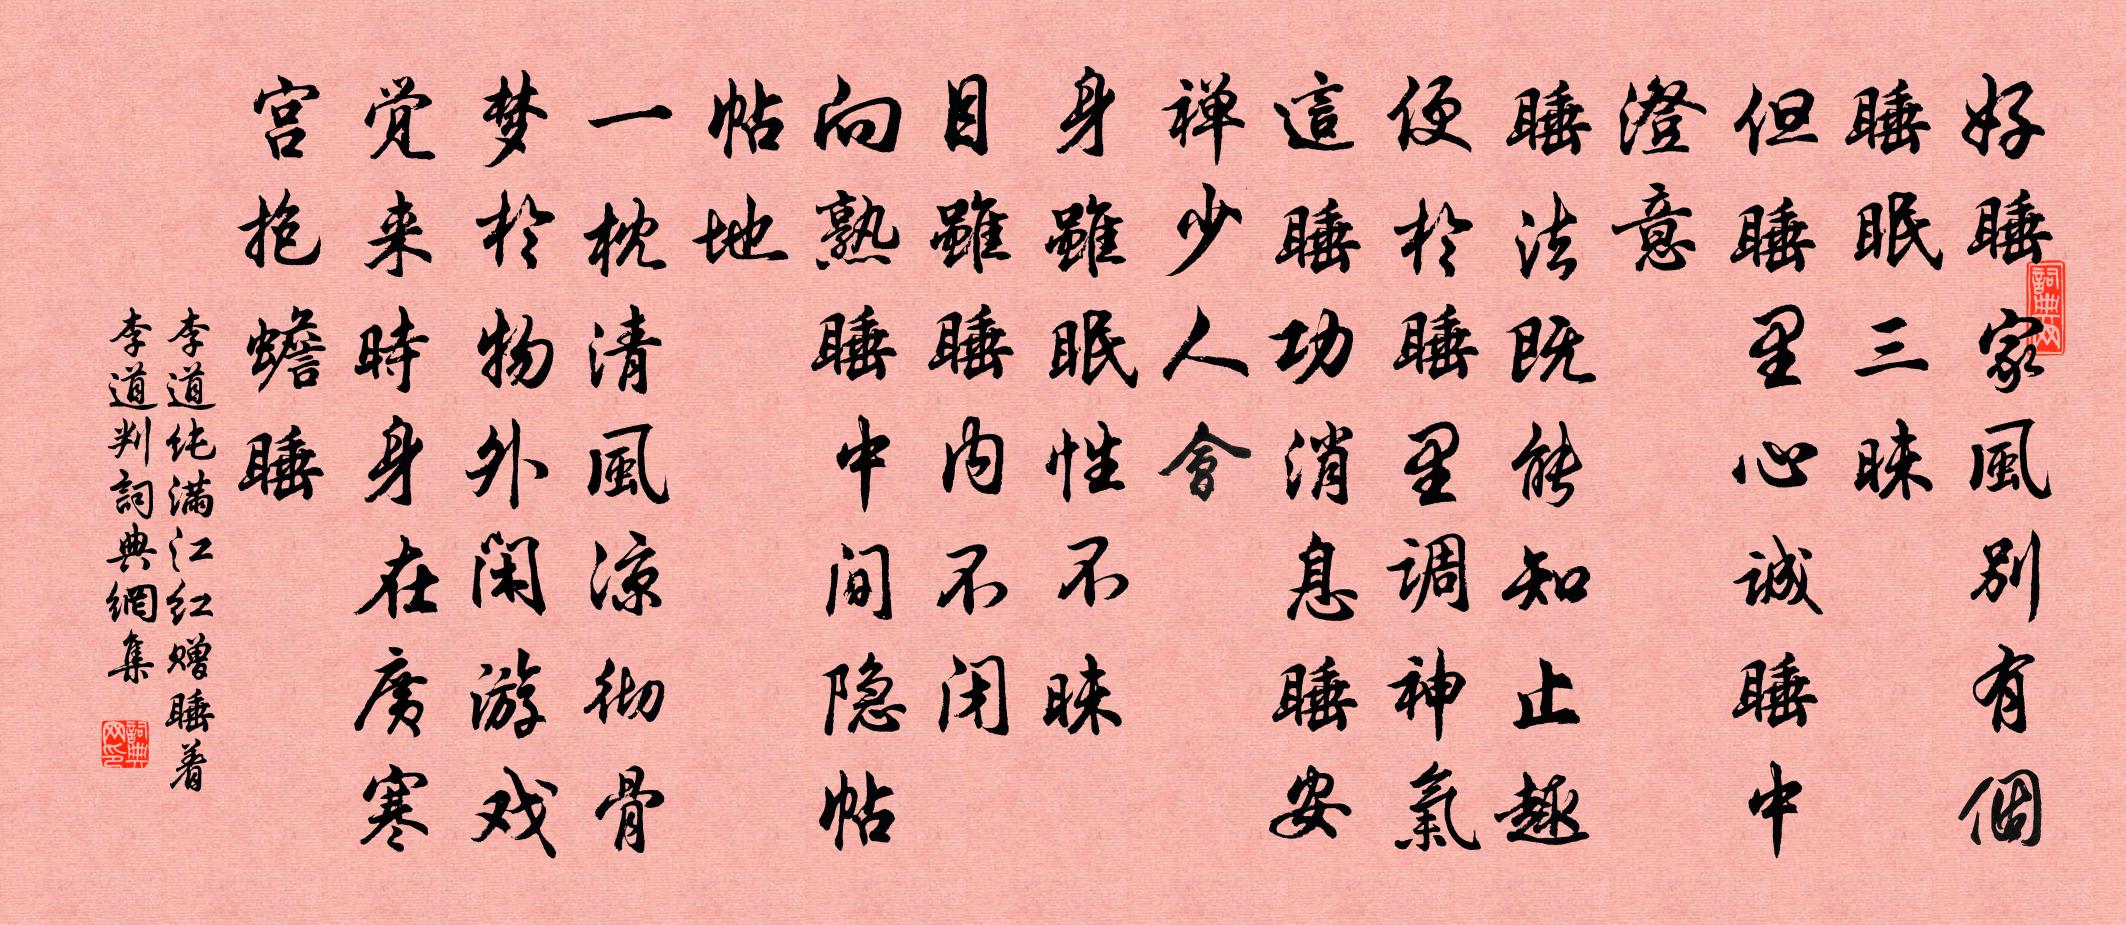 好睡家風别有個
睡眠三昧
但睡里心诚睡中
澄意
睡法既能知止趣
便於睡里调神氣
這睡功消息睡安
禅少人會
身雖眠性不昧
目雖睡内不闭
向熟睡中间隐帖
帖地
一枕清風凉彻骨
梦於物外闲游戏
觉来時身在廣寒
宫抱蟾睡
李道纯满江红赠睡着
李道判詞典網集
詞典网
詞典网印